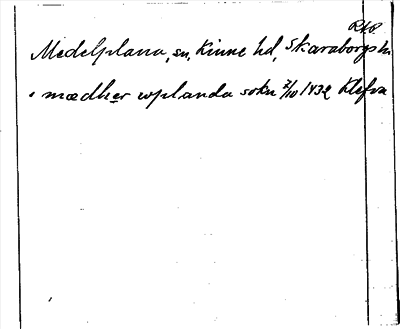 RAP
Medelplana, sn, Kinne hd, Skaraborgs ln
• mædher wplanda sokn 7/10 1432 Klefva